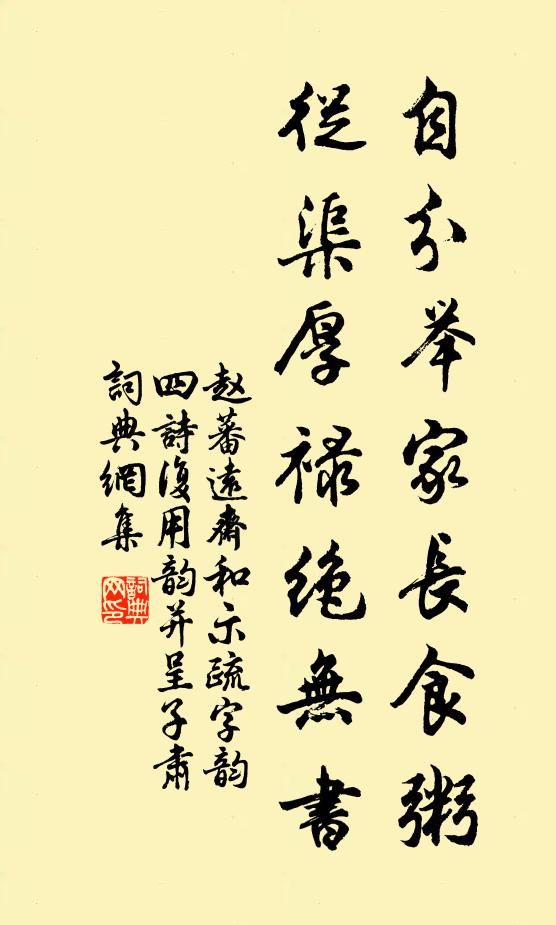 自分举家長食粥
従渠厚禄绝無書
赵蕃遠齋和示疏字韵
四詩復用韵并呈子肅
詞典網集
詞典网印